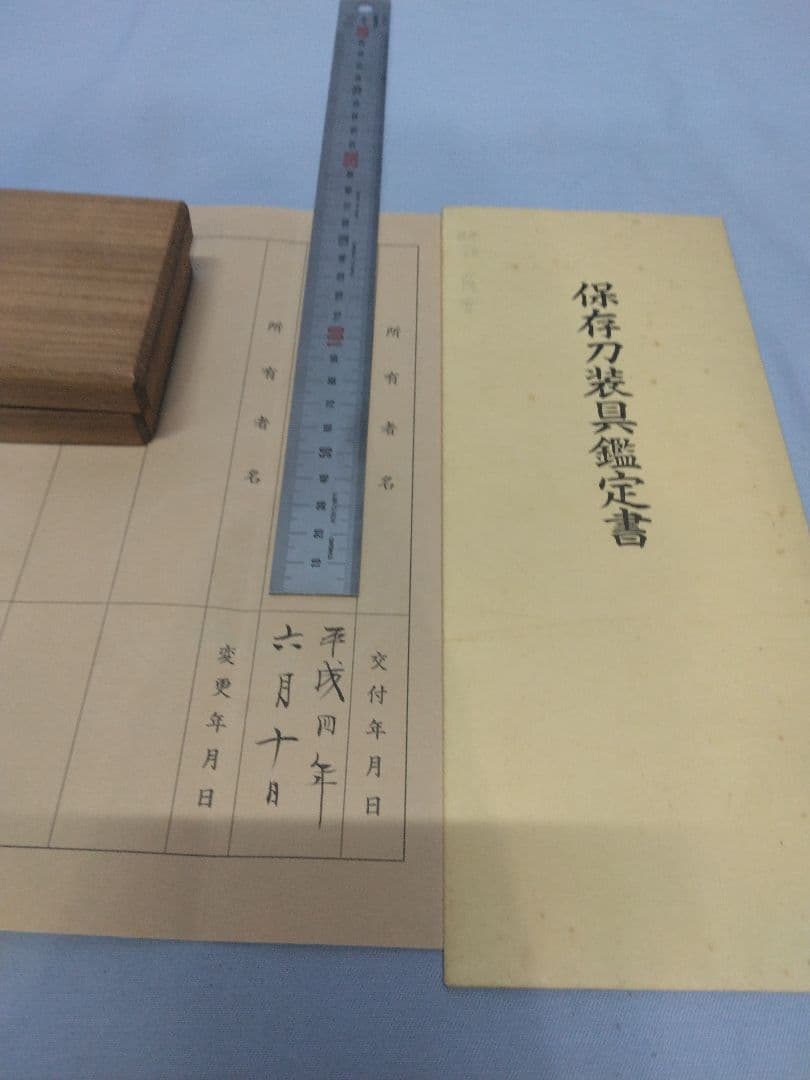 保存刀装具鑑定書
所有者名
交付年月日
平成四年
六月十日
所有者名
変更年月日
100
50
20
10